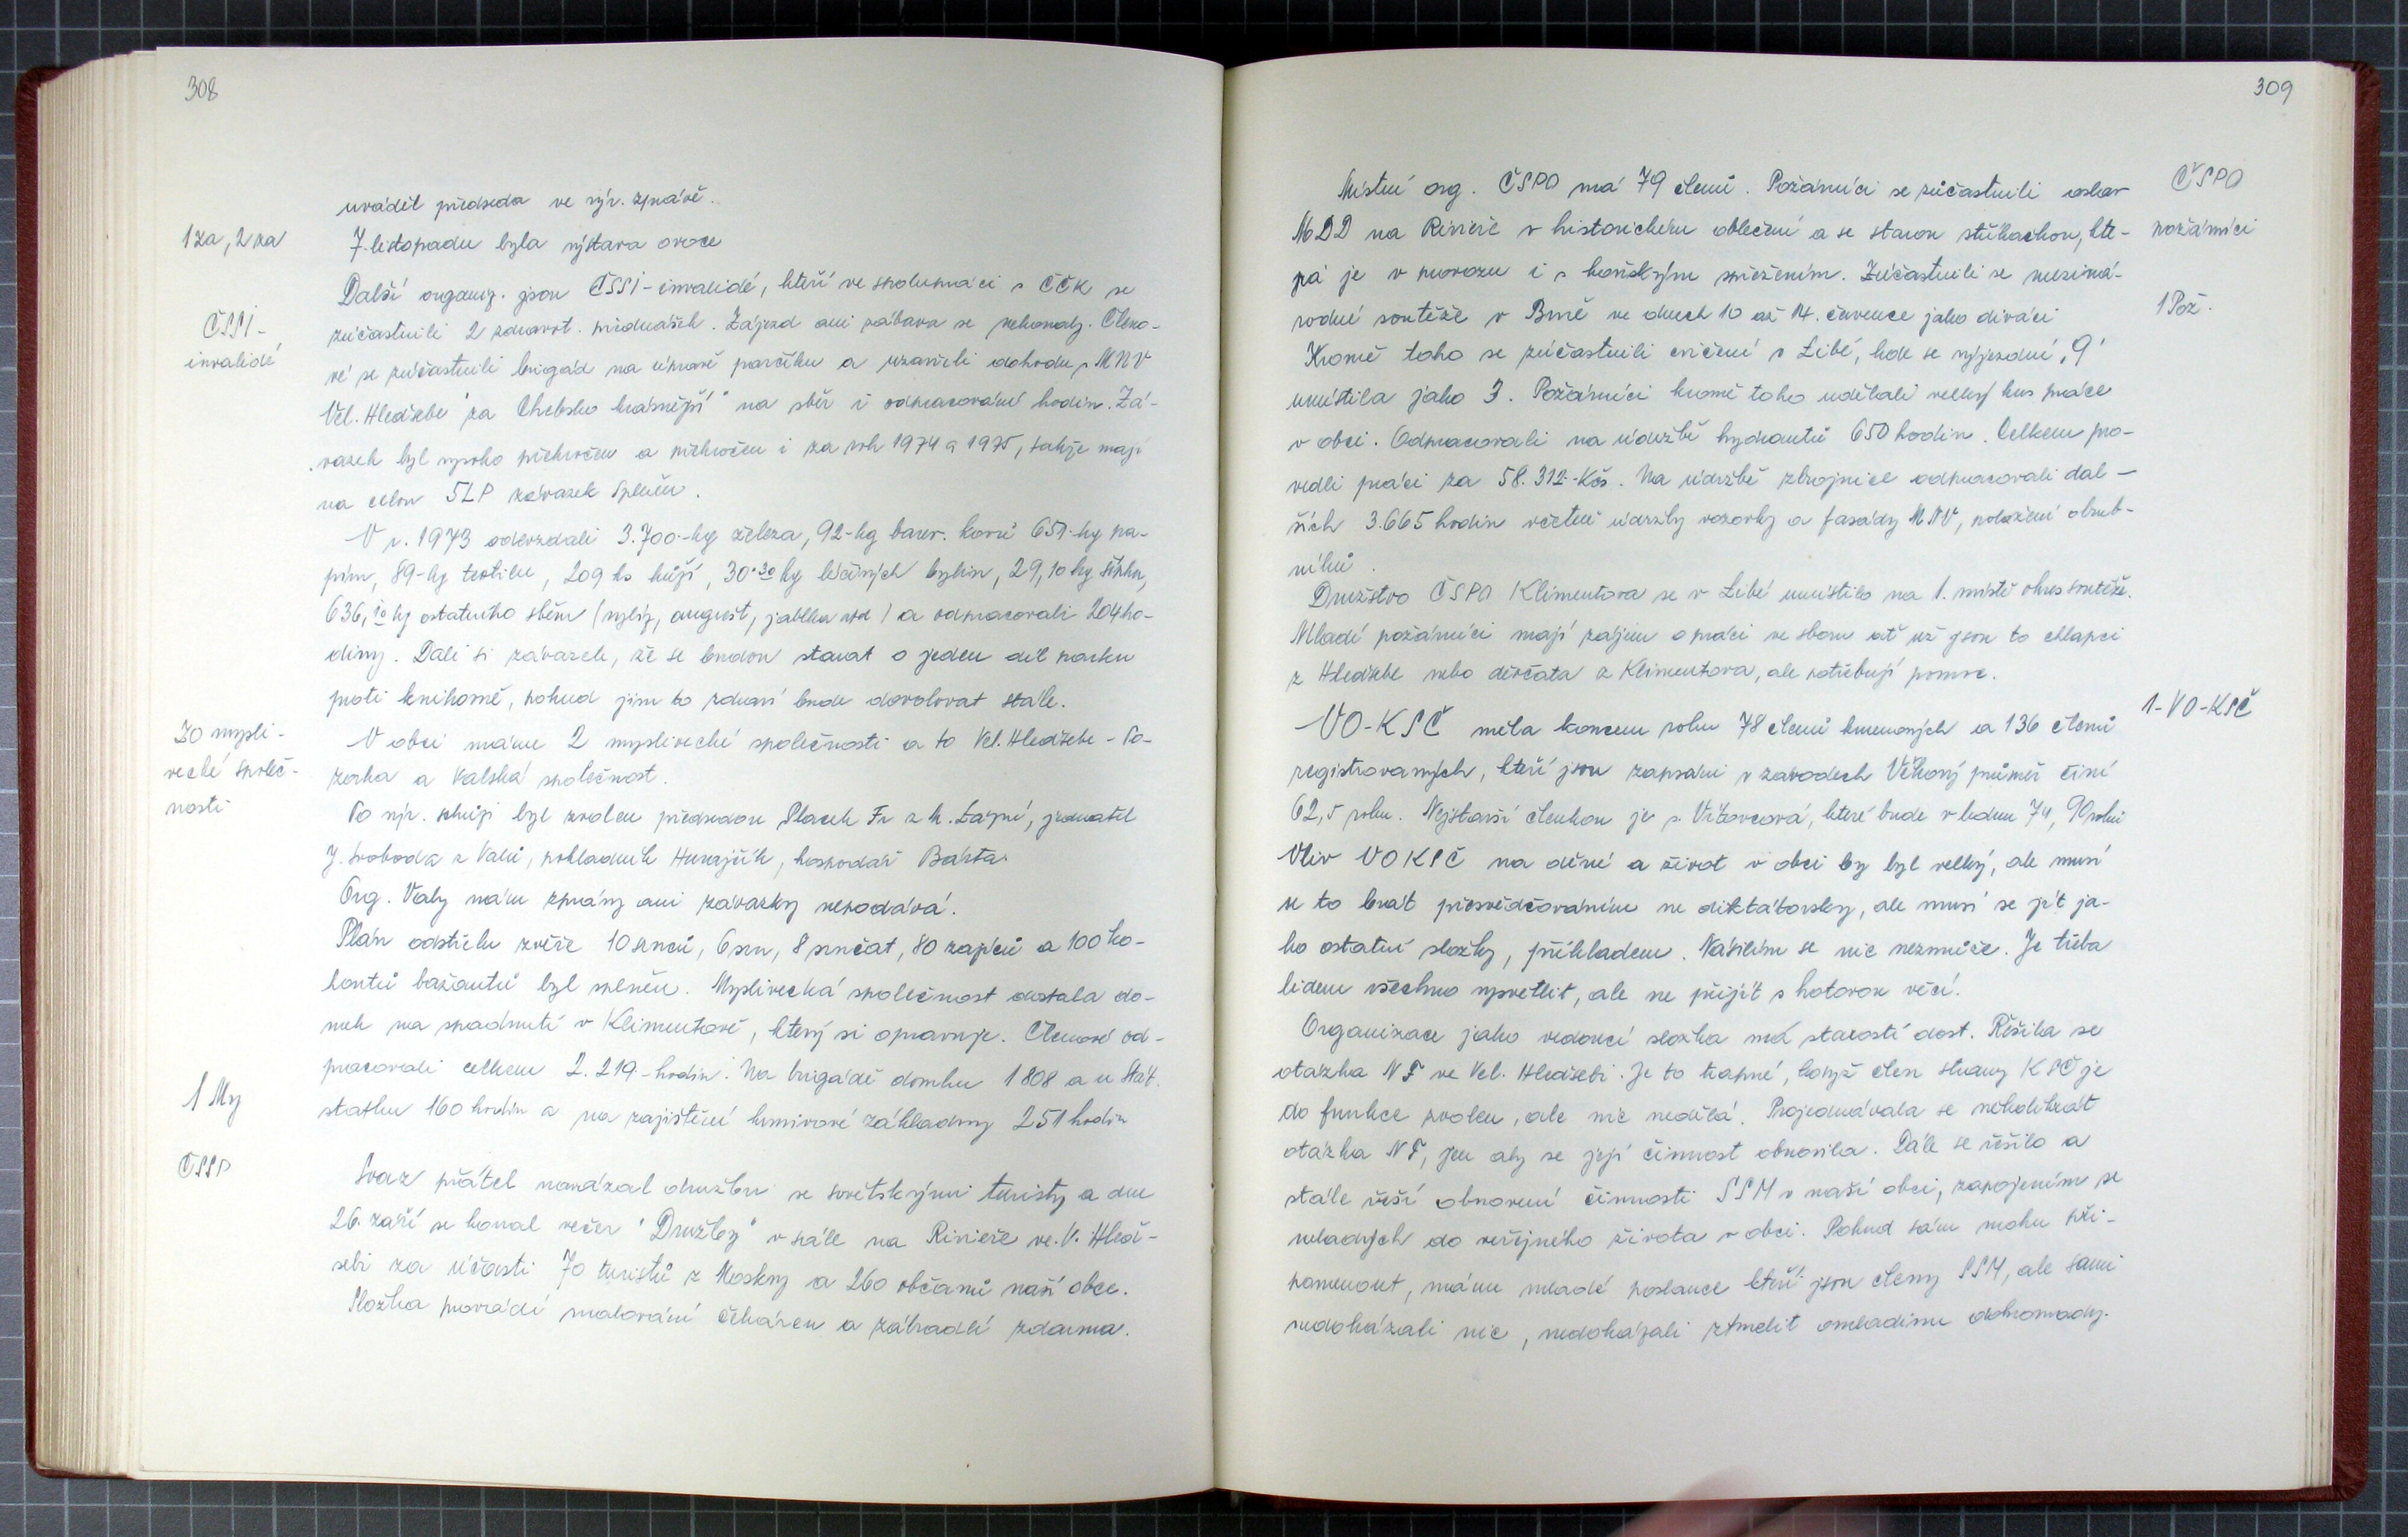 308
uvádět předseda ve výr. zprávě.
1 za, 2 za
7. listopadu byla výstava ovoce
Další organiz. jsou ČSSI-invalidé, kteří ve spolupráci s ČČK se
ČSSI-
invalidé
zúčastnili 2 zdravot. přednášek. Zájezd ani zábava se nekonaly. Členo-
vé se zúčastnili brigád na úpravě parčíku a uzavřeli dohodu s MNV
Vel. Hledsebe "za Chebsko krásnější" na sběr i odpracování hodin. Zá-
vazek byl vysoko překročen a překročen i za rok 1974 a 1975, takže mají
na celou 5LP závazek splněn.
V r. 1973 odevzdali 3.700.-kg železa, 92-kg barev. kovů 651.-kg pa-
píru, 89-kg textilu, 209 ks kůží, 30.30 kg léčivých bylin, 29,10 kg šípku,
636,10 kg ostatního sběru (rybíz, angrešt, jablka atd) a odpracovali 204 ho-
diny. Dali si závazek, že se budou starat o jeden díl parku
proti knihovně, pokud jim to zdraví bude dovolovat stále.
30 mysli-
vecké společ-
nosti
V obci máme 2 myslivecké společnosti a to Vel. Hledsebe - Po-
zorka a Valská společnost.
Po výr. schůzi byl zvolen předsedou Placek Fr z h. Lázní, jednatel
J. Svoboda z Valů, pokladník Hurajčík, hospodář Bárta.
Org. Valy nám zprávy ani závazky nepodává.
Plán odstřelu zvěře 10 srnců, 6 srn, 8 srnčat, 80 zajíců a 100 ko-
houtů bažantů byl splněn. Myslivecká společnost dostala do-
mek na spadnutí v Klimentově, který si opravuje. Členové od-
pracovali celkem 2.219.-hodin. Na brigádě domku 1808 a u Stát.
statku 160 hodin a na zajištění krmivové základny 251 hodin
1 My
ČSSP
Svaz přátel navázal družbu se sovětskými turisty a dne
26. září se konal večer "Družby" v sále na Riviéře ve V. Hled-
sebi za účasti 70 turistů z Moskvy a 260 občanů naší obce.
Složka provádí malování čekáren a zábradlí zdarma.
309
Místní org. ČSPO má 79 členů. Požárníci se zúčastnili oslav
ČSPO
MDD na Riviéře v historickém oblečení a se starou stříkačkou, kte-
požárníci
rá je v provozu i s koňským spřežením. Zúčastnili se meziná-
1 Pož.
rodní soutěže v Brně ve dnech 10 až 14. července jako diváci
Kromě toho se zúčastnili cvičení v Libé, kde se výjezdní "9"
umístila jako 3. Požárníci kromě toho udělali velký kus práce
v obci. Odpracovali na údržbě hydrantů 650 hodin. Celkem pro-
vedli práci za 58.312.-Kčs. Na údržbě zbrojnice odpracovali dal-
ších 3.665 hodin včetně údržby vozovky a fasády MNV, položení obrub-
níků.
Družstvo ČSPO Klimentova se v Libé umístilo na 1. místě okres soutěže.
Mladí požárníci mají zájem o práci ve sboru ať už jsou to chlapci
z Hledsebe nebo děvčata z Klimentova, ale potřebují pomoc.
1-VO-KSČ
VO-KSČ měla koncem roku 78 členů kmenových a 136 členů
registrovaných, kteří jsou zapsáni v závodech Věkový průměr činí
62,5 roku. Nejstarší členkou je s. Vrbovcová, které bude v lednu 74, 90 roků
Vliv VO KSČ na dění a život v obci by byl velký, ale musí
se to brát přesvědčováním ne diktátorsky, ale musí se jít ja-
ko ostatní složky, příkladem. Násilím se nic nezmůže. Je třeba
lidem všechno vysvětlit, ale ne přijít s hotovou věcí.
Organizace jako vedoucí složka má starostí dost. Řešila se
otázka NF ve Vel. Hledsebi. Je to trapné, když člen strany KSČ je
do funkce zvolen, ale nic nedělá. Projednávala se několikrát
otázka NF, jen aby se její činnost obnovila. Dále se řešilo a
stále řeší obnovení činnosti SSM v naší obci, zapojením se
mladých do veřejného života v obci. Pokud sám mohu při-
pomenout, máme mladé poslance kteří jsou členy SSM, ale sami
nedokázali nic, nedokázali stmelit omladinu dohromady.